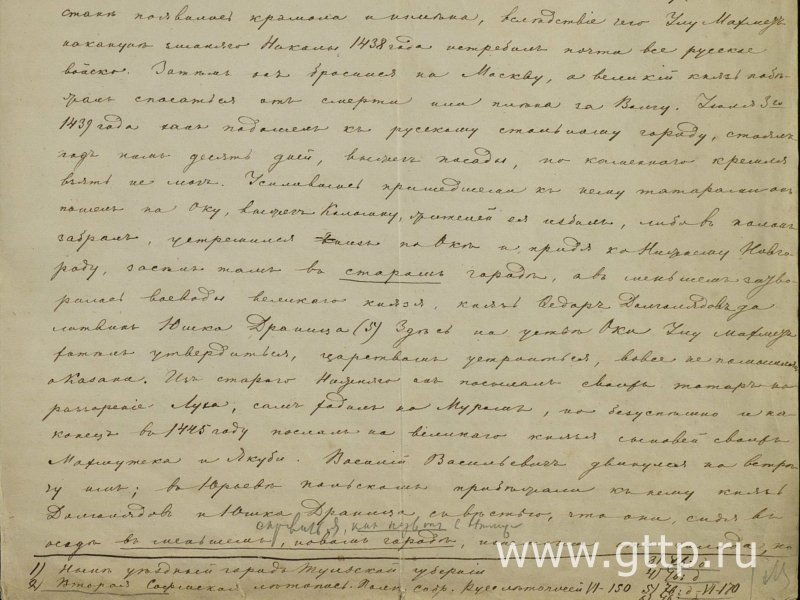 станѣ появилась крамола и измѣна, вслѣдствіе чего Улу Махметъ
наканунѣ зимняго Николы 1438 года истребилъ почти все русское
войско. Затѣмъ онъ бросился на Москву, а великій князь побѣ-
жалъ спасаться отъ смерти или плѣна за Волгу. Іюля 3го
1439 года ханъ подошелъ къ русскому стольному городу, стоялъ
подъ нимъ десять дней, выжегъ посады, но каменнаго кремля
взять не могъ. Усилившись пришедшими къ нему татарами онъ
пошелъ на Оку, выжегъ Коломну, жителей ея избилъ, либо въ полонъ
забралъ, устремился внизъ по Окѣ и, придя ко Нижнему Новго-
роду, засѣлъ тамъ въ старомъ городѣ, а въ меньшемъ затво-
рились воеводы великаго князя, князь Ѳедоръ Долголядовъ да
литвинъ Юшка Драница (3) Здѣсь на устьѣ Оки Улу Махметъ
хотѣлъ утвердиться, царствомъ устроиться, вовсе не помышляя
о Казани. Изъ стараго Нижняго онъ посылалъ своихъ татаръ на
разореніе Луха, самъ ходилъ на Муромъ, но безуспѣшно и на-
конецъ въ 1445 году послалъ на великаго князя сыновей своихъ
Махмутека и Якуба. Василій Васильевичъ двинулся на встрѣ-
чу имъ; въ Юрьевъ польскомъ прибѣжали къ нему князь
Долголядовъ и Юшка Драница, съ вѣстью, что они, сидя въ
осадѣ въ меньшемъ, новомъ городѣ,
1) Нынѣ уѣздный городъ Тульской губерніи
2) Вторая Софійская лѣтопись. Полн. собр. Русс. лѣтописей VI - 150
VI-170
www.gttp.ru